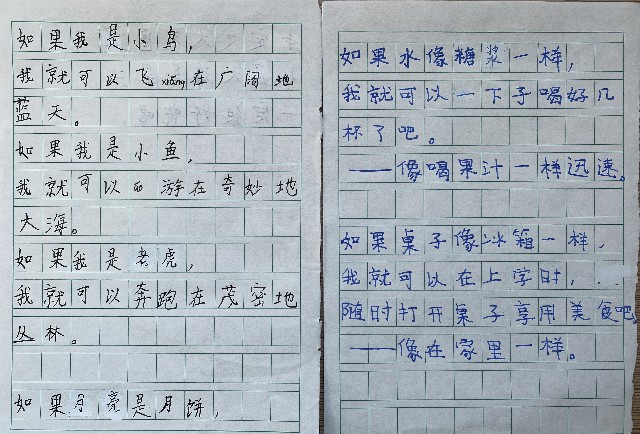 如果我是小鸟，
我就可以飞xiáng在广阔地
蓝天。
如果我是小鱼，
我就可以游在奇妙地
大海。
如果我是老虎，
我就可以奔跑在茂密地
丛林。
如果月亮是月饼，
如果水像糖浆一样，
我就可以一下子喝好几
杯了吧。
——像喝果汁一样迅速。
如果桌子像冰箱一样，
我就可以在上学时，..
随时打开桌子享用美食吧
——像在家里一样。